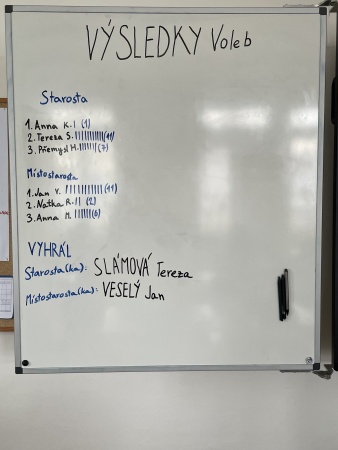 VÝSLEDKY Voleb
Starosta
1. Anna K. I (1)
2. Tereza S. IIIIIIIIIII (11)
3. Přemysl H. IIIIIII (7)
Místostarosta
1. Jan V. IIIIIIIIIII (11)
2. Naťka R. II (2)
3. Anna M. IIIIII (6)
VYHRÁL
Starosta(ka): SLÁMOVÁ Tereza
Místostarosta(ka): VESELÝ Jan